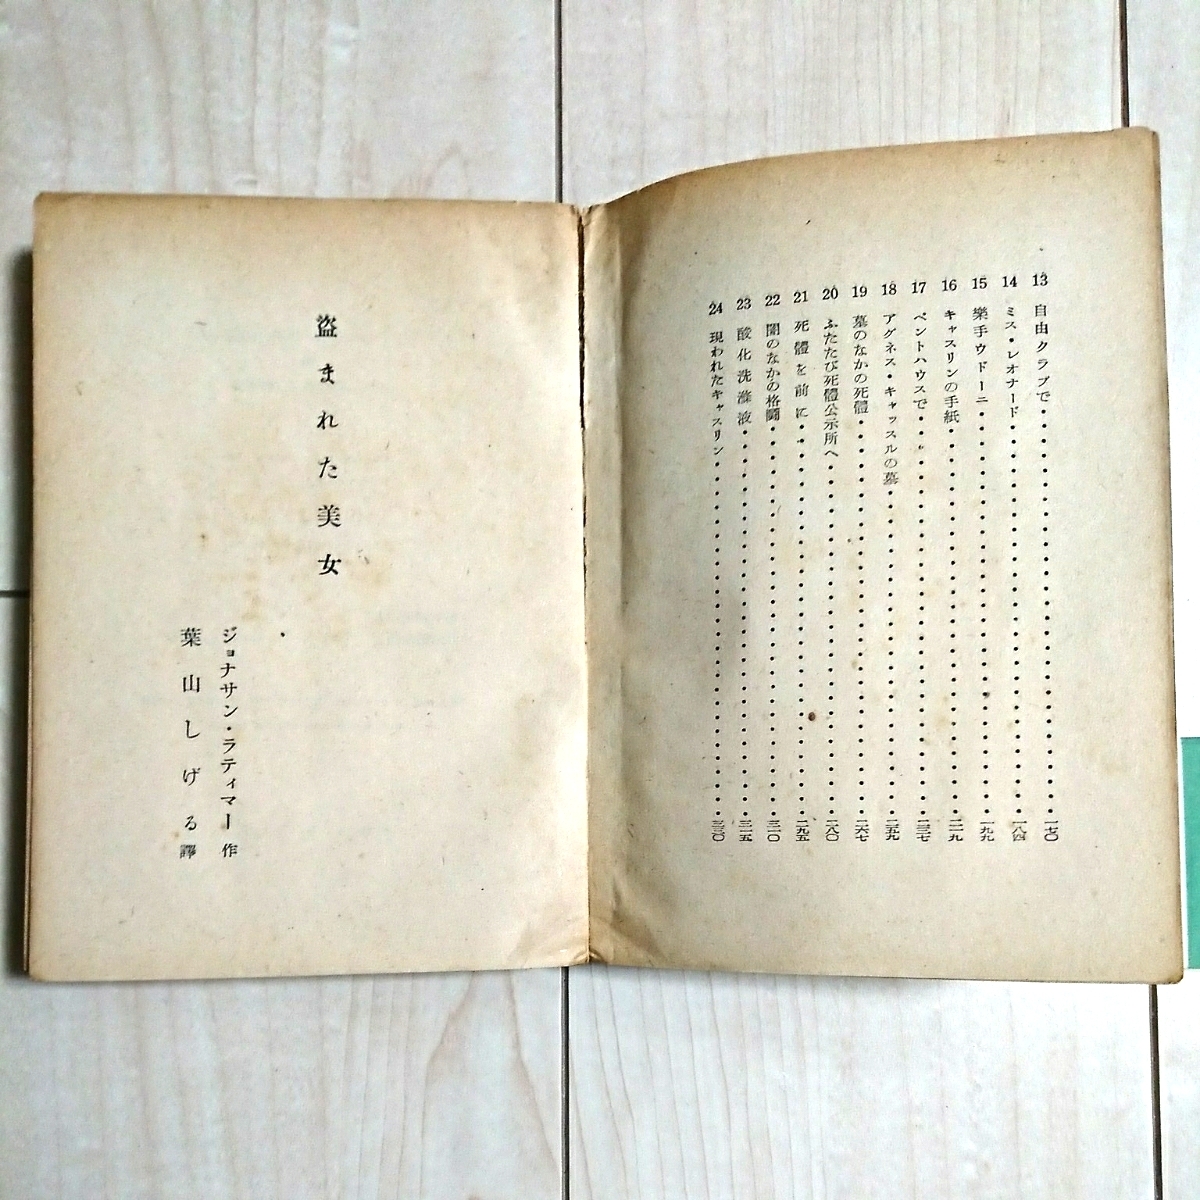 13 自由クラブで・・・・・・・・・・・・・・・・・・・・・・・一七〇
14 ミス・レオナード・・・・・・・・・・・・・・・・・・・・・・一八四
15 樂手ウドーニ・・・・・・・・・・・・・・・・・・・・・・・一九九
16 キャスリンの手紙・・・・・・・・・・・・・・・・・・・・・・二一九
17 ペントハウスで・・・・・・・・・・・・・・・・・・・・・・・二三七
18 アグネス・キャッスルの墓・・・・・・・・・・・・・・・・・・・二五九
19 墓のなかの死體・・・・・・・・・・・・・・・・・・・・・・・二六七
20 ふたたび死體公示所へ・・・・・・・・・・・・・・・・・・・・二八〇
21 死體を前に・・・・・・・・・・・・・・・・・・・・・・・・二九五
22 闇のなかの格闘・・・・・・・・・・・・・・・・・・・・・・・三一〇
23 酸化洗滌液・・・・・・・・・・・・・・・・・・・・・・・・三一五
24 現われたキャスリン・・・・・・・・・・・・・・・・・・・・・三三〇
盗まれた美女
ジョナサン・ラティマー作
葉山しげる譯